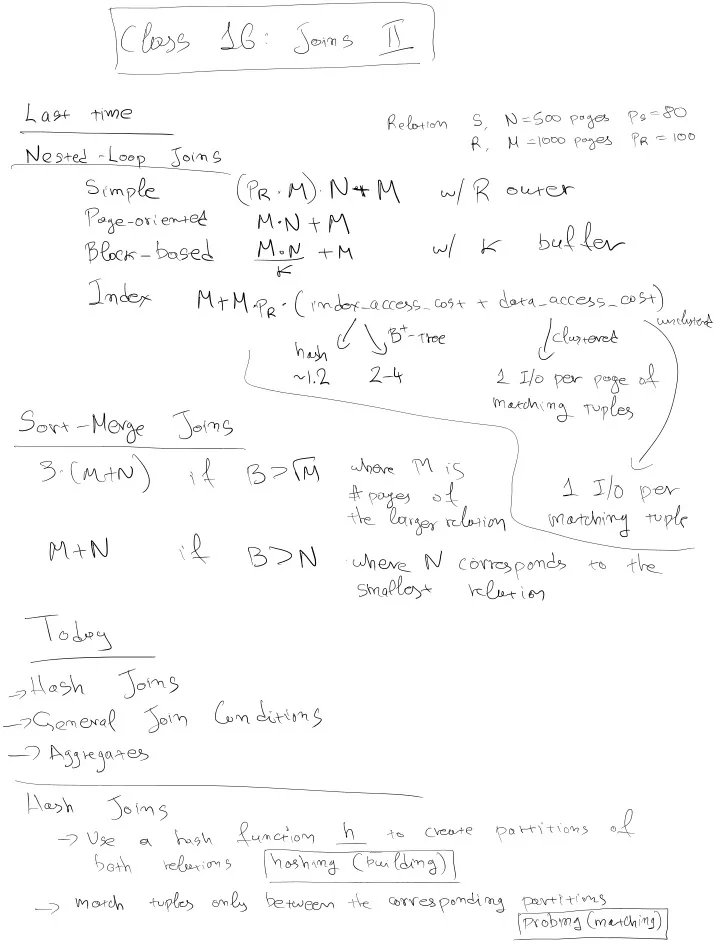 Class 16: Joins II
Last time
Relation S, N=500 pages Ps=80
R, M=1000 pages PR=100
Nested-Loop Joins
Simple (PR·M)·N+M w/ R outer
Page-oriented M·N+M
Block-based M·N/K +M w/ K buffer
Index M+M·PR·(index_access_cost + data_access_cost)
hash ~1.2
B+-Tree 2-4
clustered
1 I/O per page of
matching tuples
unclustered
1 I/O per
matching tuple
Sort-Merge Joins
3·(M+N) if B>√M where M is
# pages of
the larger relation
M+N if B>N where N corresponds to the
smallest relation
Today
→Hash Joins
→General Join Conditions
→Aggregates
Hash Joins
→ Use a hash function h to create partitions of
both relations hashing (building)
→ match tuples only between the corresponding partitions
probing (matching)